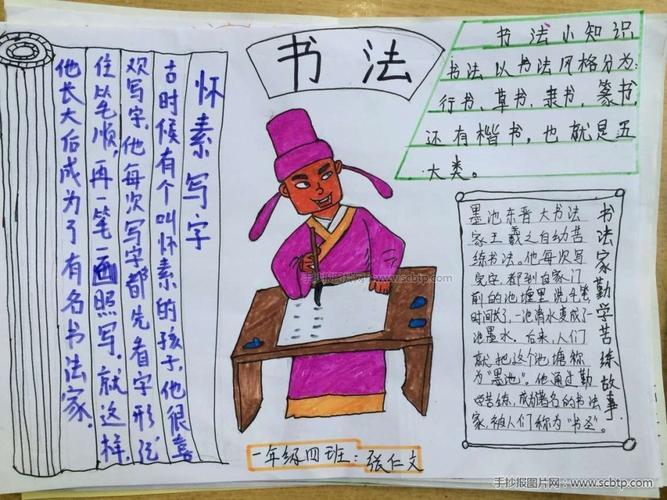 书法
怀素写字
古时候有个叫怀素的孩子，他很喜
欢写字，他每次写字都先看字形，记
住笔顺，再一笔一画照写。就这样，
他长大后成为了有名书法家。
书法小知识
书法以书法风格分为：
行书、草书、隶书、篆书
还有楷书，也就是五
大类。
书法家勤学苦练故事
墨池东晋大书法
家王羲之自幼苦
练书法。他每次写
完字，都到自家门
前的池塘里洗毛笔，
时间长了，一池清水变成了一
池墨水。后来，人们
就把这个池塘称
为"墨池"。他通过勤
学苦练，成著名的书法
家，被人们称为"书圣"。
一年级四班：张仁文
手抄报图片网 www.scbtp.com
手抄报图片网：www.scbtp.com